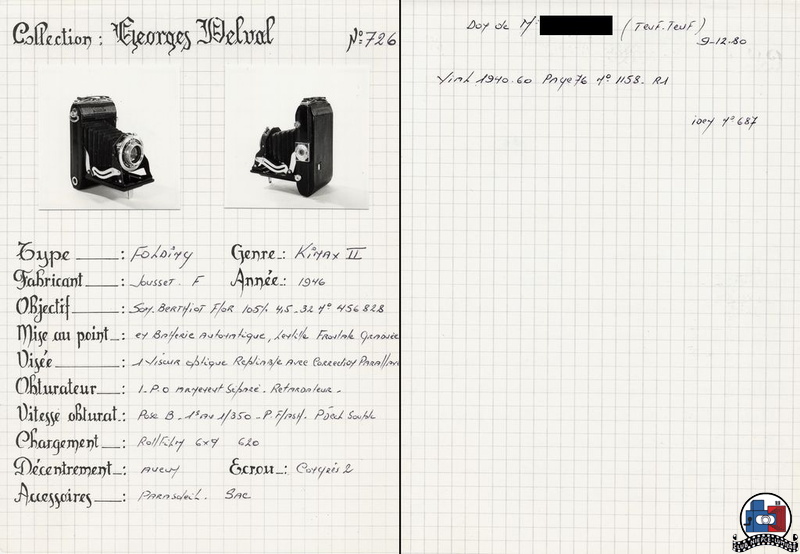 Collection : Georges Delval Nº 726
Type : Folding Genre : Kinax II
Fabricant : Jousset. F Année : 1946
Objectif : Som. Berthiot Flor 105% 4,5.32 Nº 456828
Mise au point : et Batterie Automatique, Lentille Frontale
Visée : 1 Viseur optique Repliable Avec Correction
Obturateur : I.P.O Séparé. Retardateur.
Vitesse obturat. : Pose B. 1s au 1/350 - P. Flash.
Chargement : Rollfilm 6x9 620
Décentrement : Aucun Ecrou : Congrès 2
Accessoires : Parasoleil. Sac
Don de Mr (Teuf.Teuf)
9-12-80
Vial 1940.60 Page 76 Nº 1158. R1
Nº 687